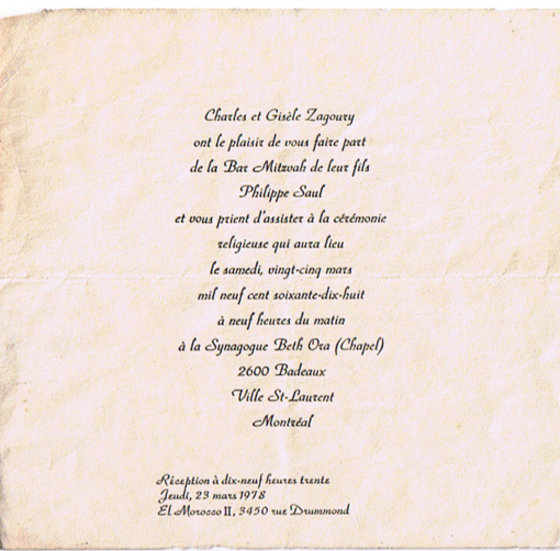 Charles et Gisèle Zagoury
ont le plaisir de vous faire part
de la Bar Mitzvah de leur fils
Philippe Saul
et vous prient d'assister à la cérémonie
religieuse qui aura lieu
le samedi, vingt-cinq mars
mil neuf cent soixante-dix-huit
à neuf heures du matin
à la Synagogue Beth Ora (Chapel)
2600 Badeaux
Ville St-Laurent
Montréal
Réception à dix-neuf heures trente
Jeudi, 23 mars 1978
El Morocco II, 3450 rue Drummond